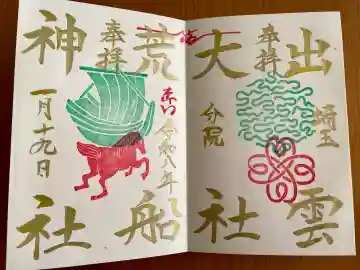 出雲
埼玉
奉拝
分院
大社
荒船
令和八年
奉拝
神社
一月十九日